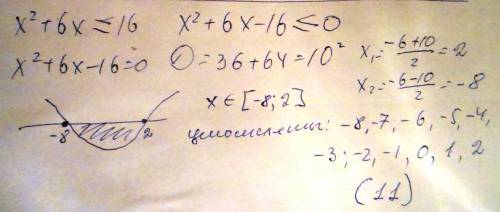 x²+6x≤16 x²+6x-16≤0
x²+6x-16=0 D=36+64=10² x₁=(-6+10)/2=2
x₂=(-6-10)/2=-8
x∈[-8;2]
-8 2
целочисленны: -8,-7,-6,-5,-4,
-3;-2,-1,0,1,2
(11)